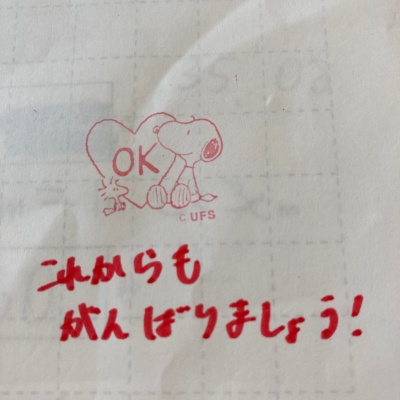 OK
© UFS
これからも
がんばりましょう!